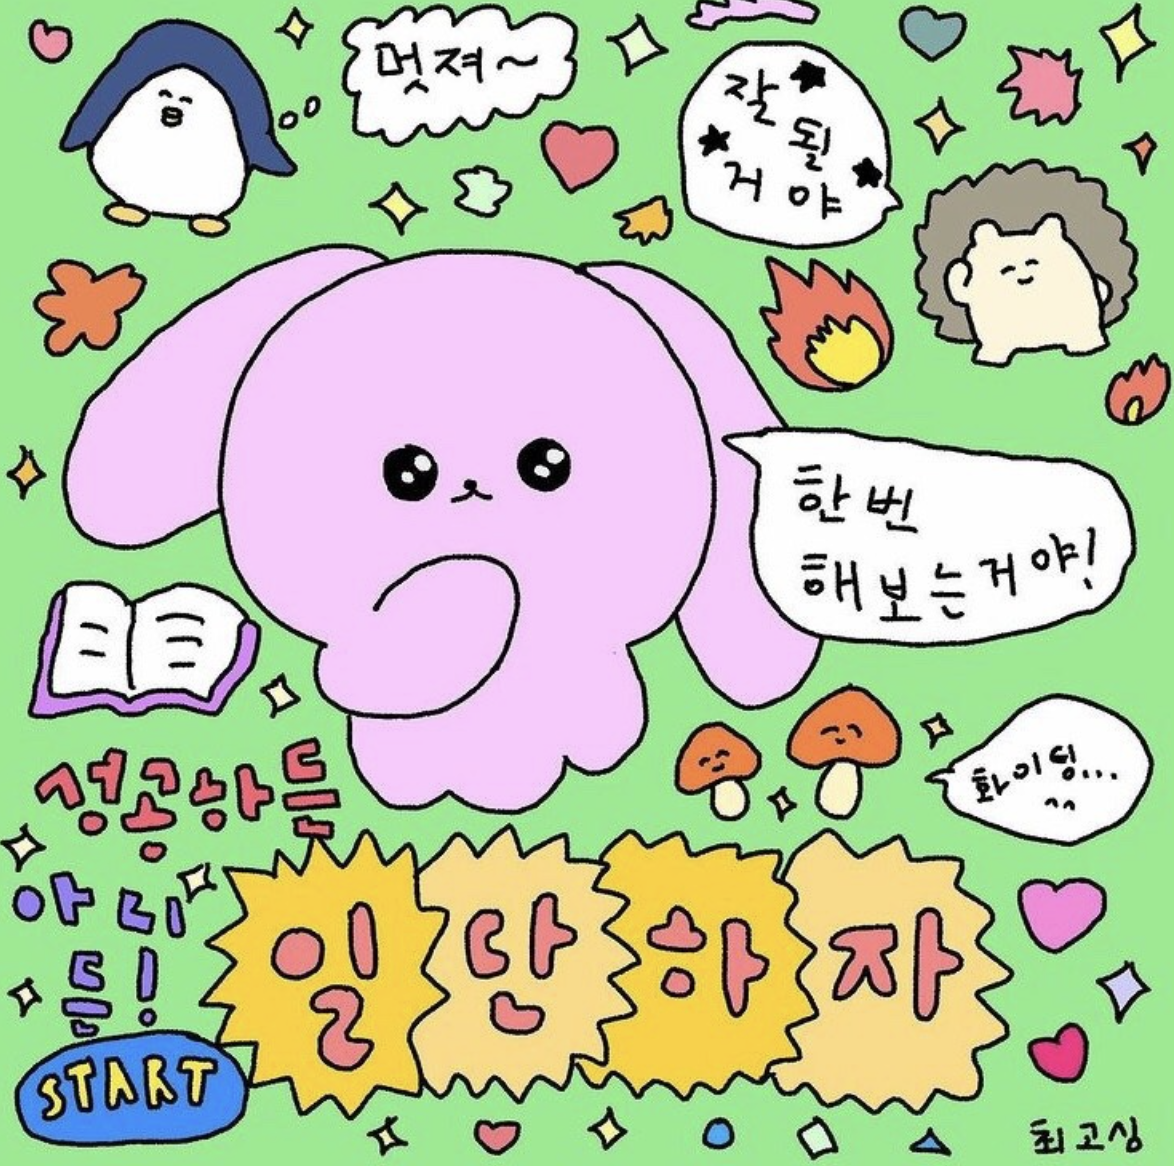 멋져~
잘
될
거야
한번
해보는거야!
화이팅...
^^
성공하든
아니
든!
일단하자
START
최고심